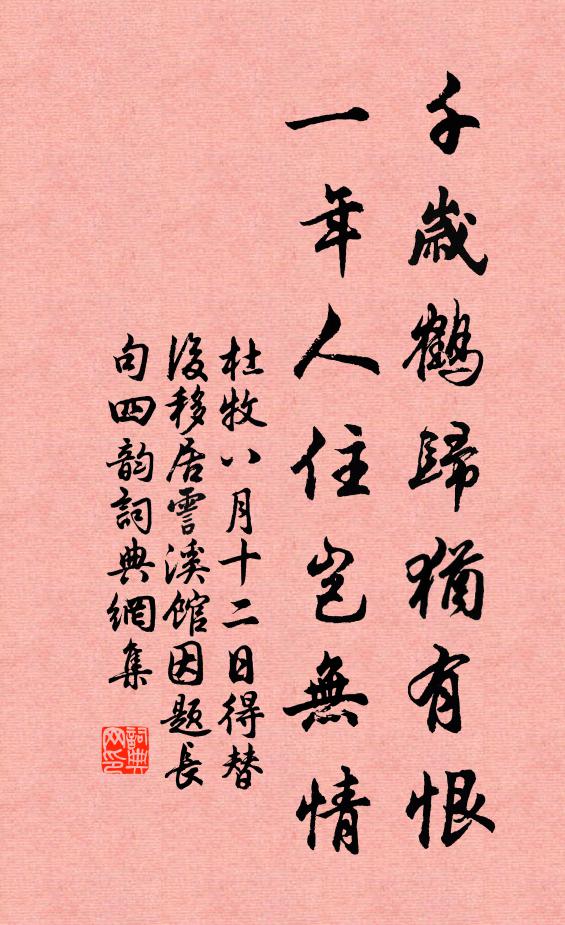 千歲鶴歸猶有恨
一年人住豈無情
杜牧八月十二日得替
後移居霅溪館因題長
句四韵詞典網集
詞典
网印